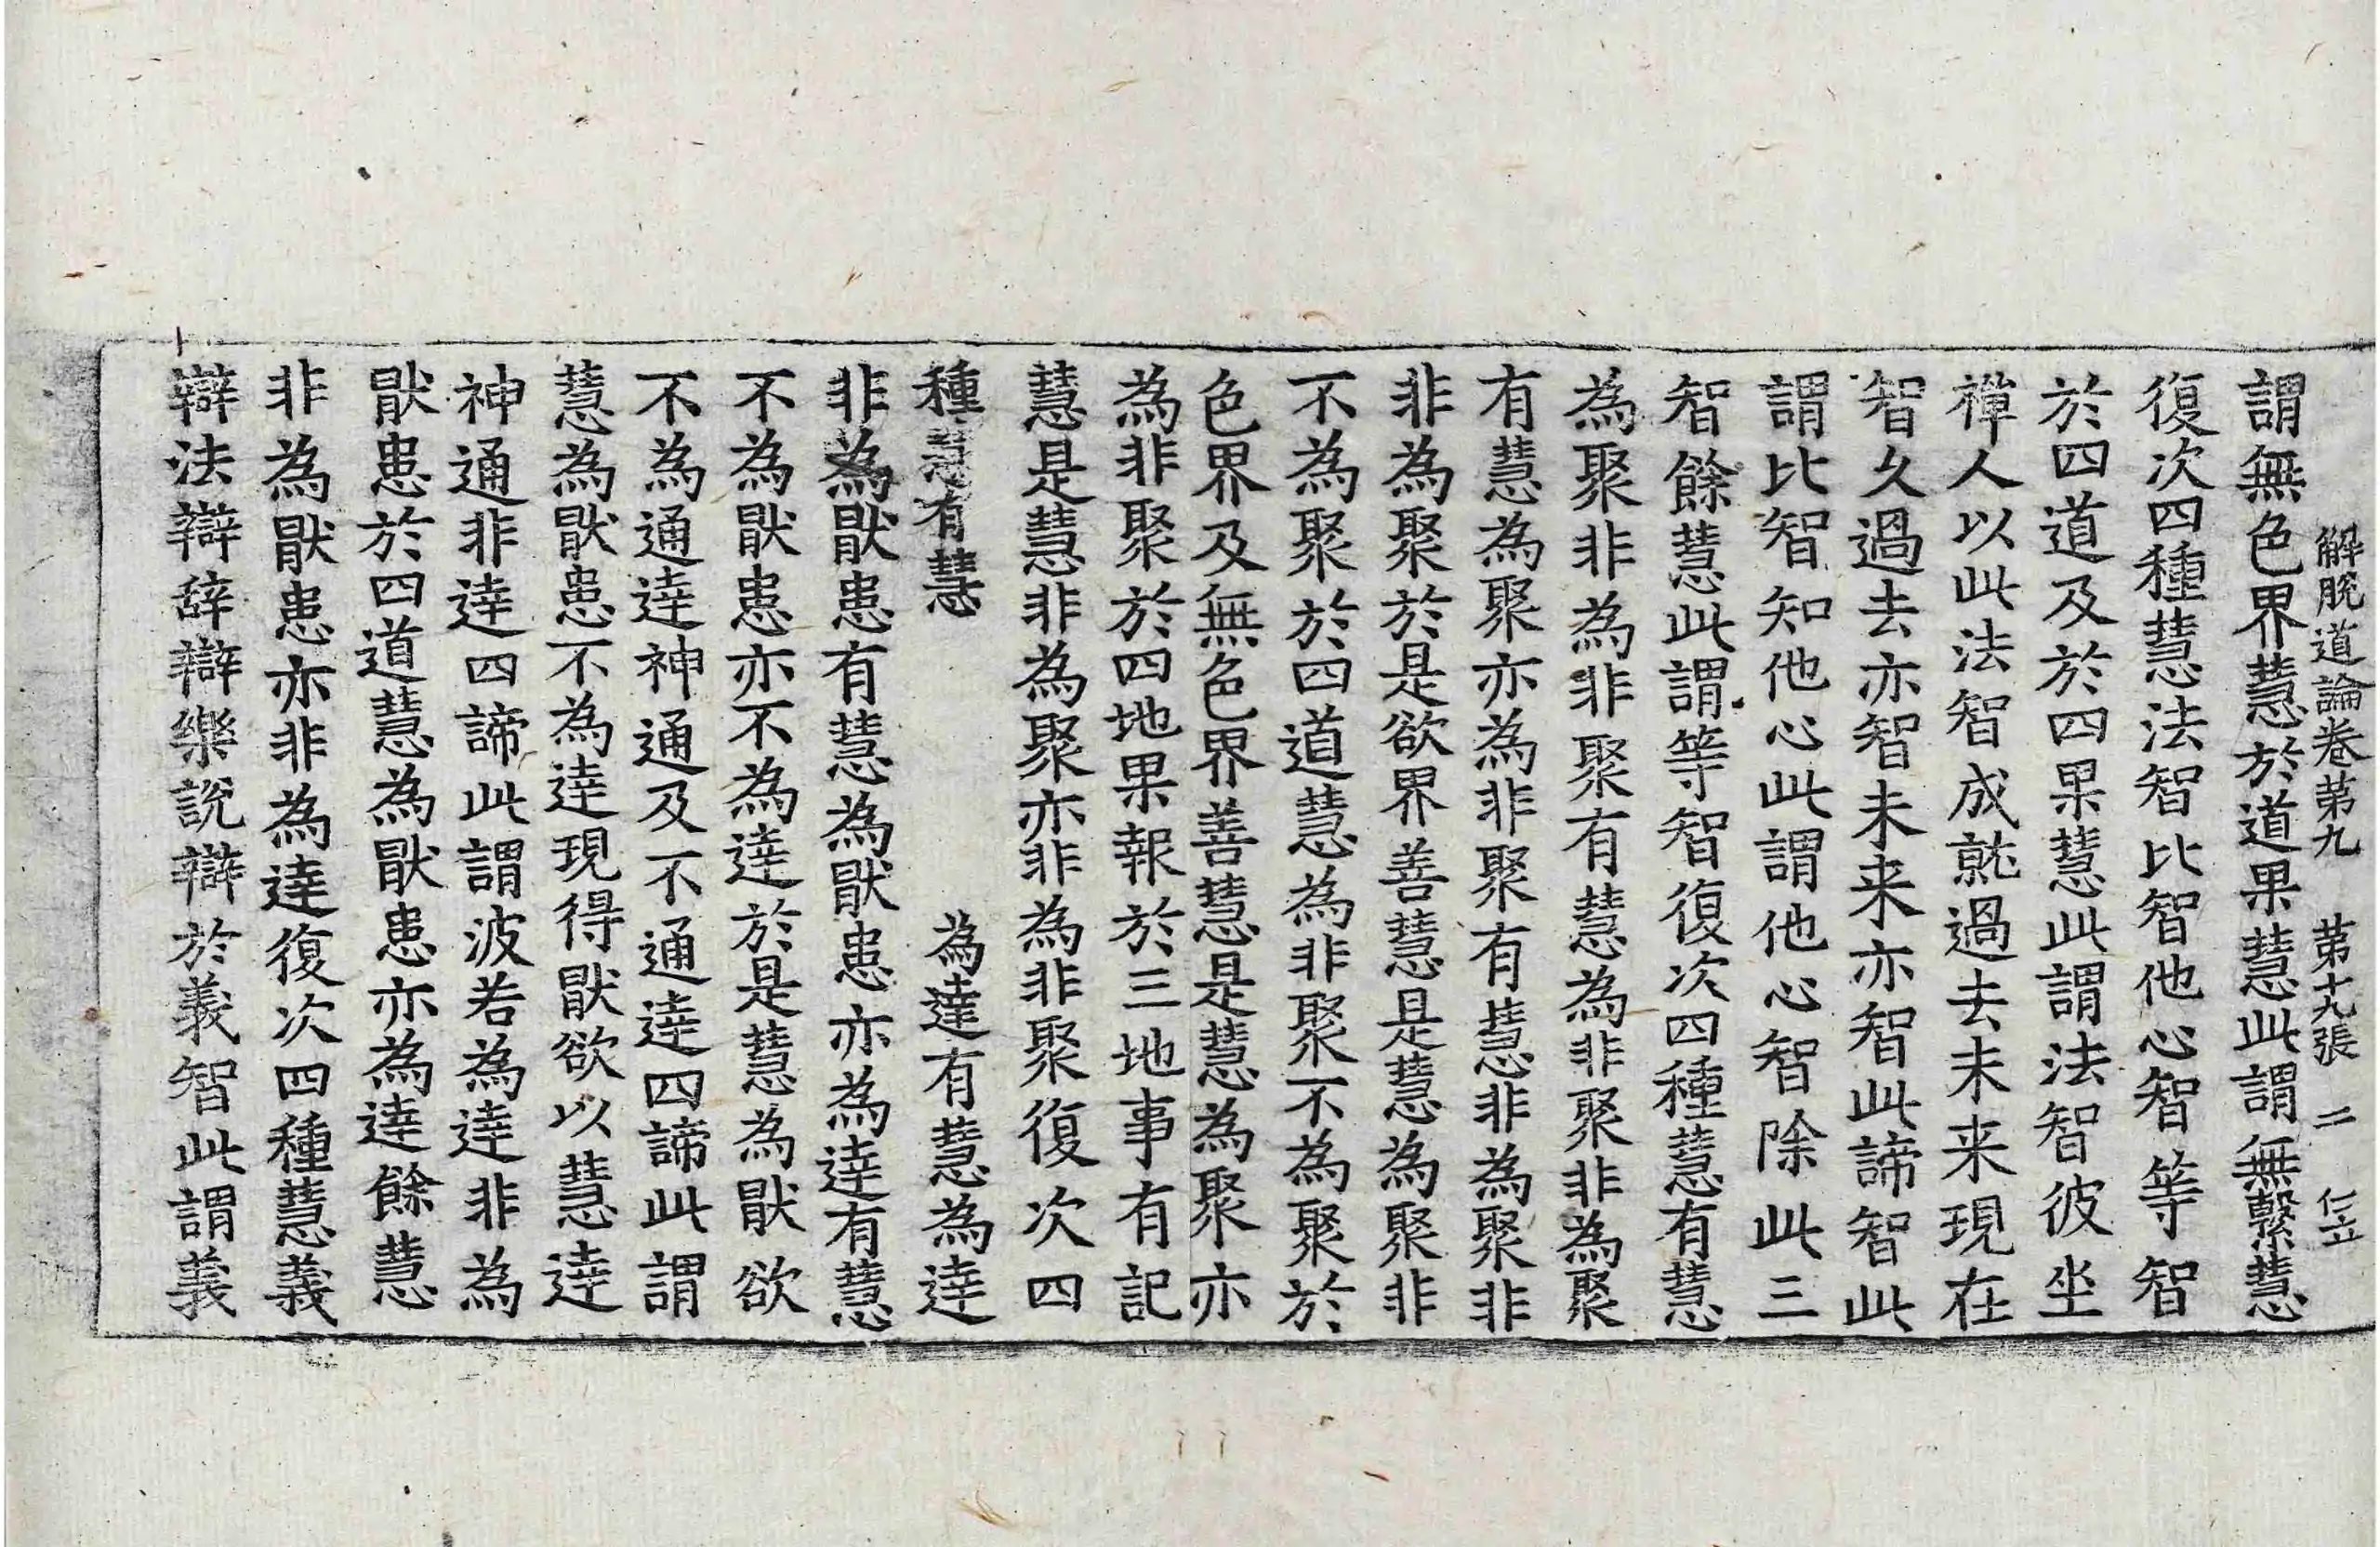 解脫道論卷第九　第十九張　二　仁立
謂無色界慧於道果慧此謂無繫慧
復次四種慧法智比智他心智等智
於四道及於四果慧此謂法智彼坐
禪人以此法智成就過去未来現在
智久過去亦智未来亦智此諦智此
謂比智知他心此謂他心智除此三
智餘慧此謂等智復次四種慧有慧
為聚非為非聚有慧為非聚非為聚
有慧為聚亦為非聚有慧非為聚非
非為聚於是欲界善慧是慧為聚非
不為聚於四道慧為非聚不為聚於
色界及無色界善慧是慧為聚亦
為非聚於四地果報於三地事有記
慧是慧非為聚亦非為非聚復次四
種慧有慧　　　　為達有慧為達
非為猒患有慧為猒患亦為達有慧
不為猒患亦不為達於是慧為猒欲
不為通達神通及不通達四諦此謂
慧為猒患不為達現得猒欲以慧達
神通非達四諦此謂波若為達非為
猒患於四道慧為猒患亦為達餘慧
非為猒患亦非為達復次四種慧義
辯法辯辞辯樂説辯於義智此謂義